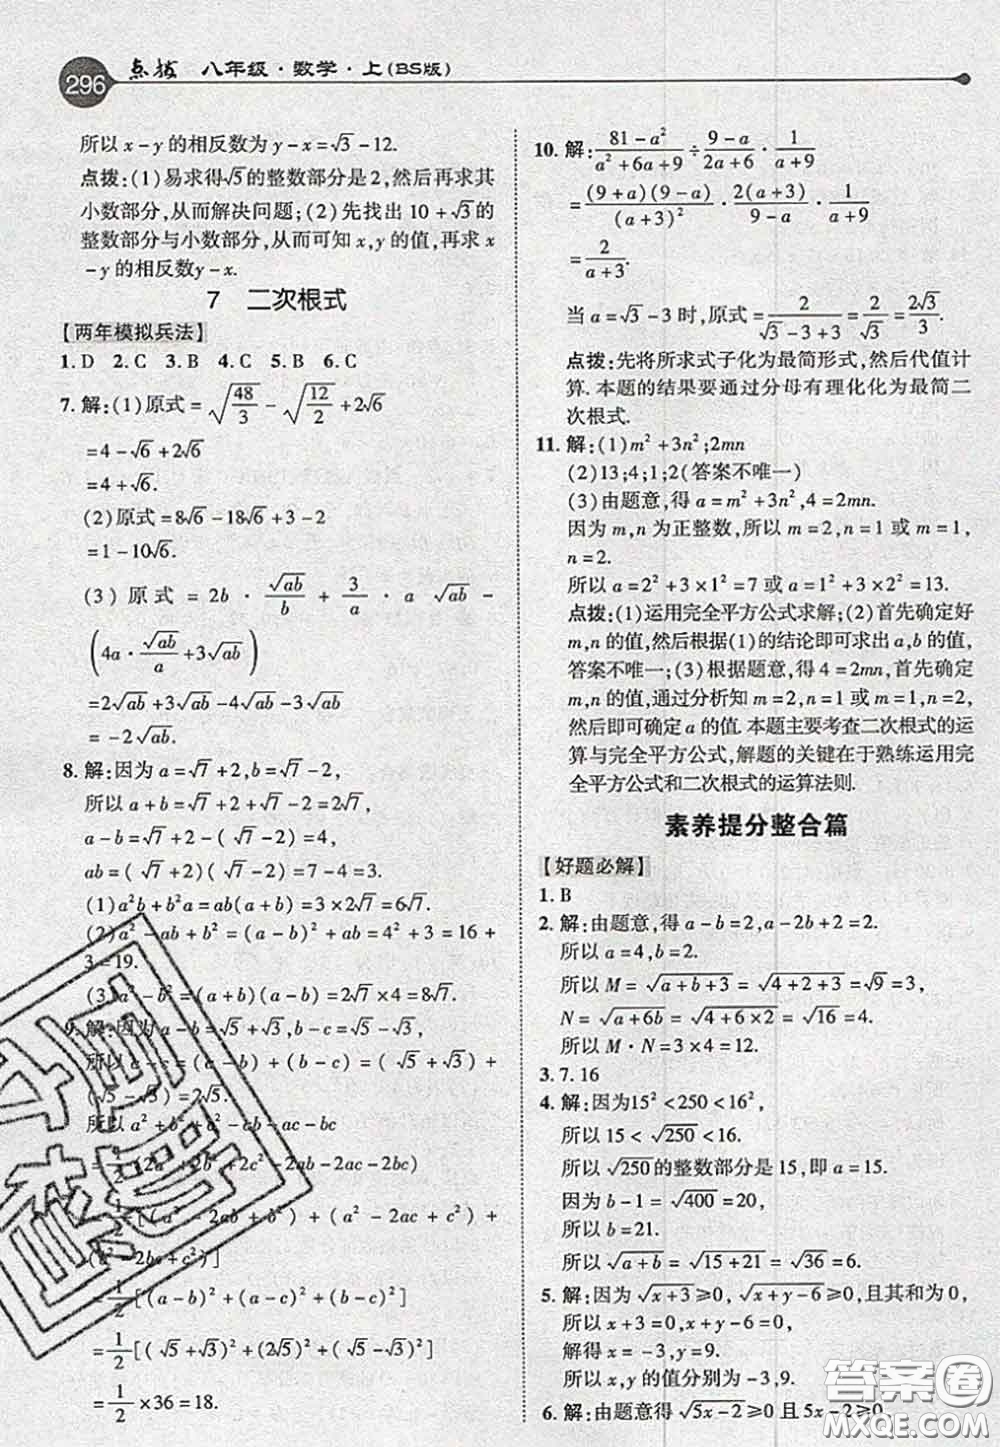 296 点拨 八年级·数学·上(BS版)
所以 x-y 的相反数为 y-x=√3-12.
点拨:(1)易求得√5的整数部分是2,然后再求其
小数部分,从而解决问题;(2)先找出 10+√3的
整数部分与小数部分,从而可知 x,y 的值,再求 x
-y 的相反数y-x.
7 二次根式
【两年模拟兵法】
1. D 2. C 3. B 4. C 5. B 6. C
7. 解:(1)原式=√(48/3)-√(12/2)+2√6
=4-√6+2√6
=4+√6.
(2)原式=8√6-18√6+3-2
=1-10√6.
(3) 原式=2b·√ab/b+3/a·a√ab-
(4a·√ab/a+3√ab)
=2√ab+3√ab-4√ab-3√ab
=-2√ab.
8. 解:因为 a=√7+2,b=√7-2,
所以 a+b=√7+2+√7-2=2√7,
a-b=√7+2-(√7-2)=4,
ab=(√7+2)(√7-2)=7-4=3.
(1)a²b+b²a=ab(a+b)=3×2√7=6√7.
(2)a²-ab+b²=(a-b)²+ab=4²+3=16+
3=19.
(3)a²-b²=(a+b)(a-b)=2√7×4=8√7.
9. 解:因为 a-b=√5+√3,b-c=√5-√3,
所以 a-c=(a-b)+(b-c)=(√5+√3)+
(√5-√3)=2√5.
所以 a²+b²+c²-ab-ac-bc
=1/2(2a²+2b²+2c²-2ab-2ac-2bc)
=1/2[(a²-2ab+b²)+(a²-2ac+c²)+
(b²-2bc+c²)]
=1/2[(a-b)²+(a-c)²+(b-c)²]
=1/2[(√5+√3)²+(2√5)²+(√5-√3)²]
=1/2×36=18.
10. 解:(81-a²)/(a²+6a+9)÷(9-a)/(2a+6)·1/(a+9)
=(9+a)(9-a)/(a+3)²·2(a+3)/(9-a)·1/(a+9)
=2/(a+3).
当 a=√3-3 时,原式=2/(√3-3+3)=2/√3=2√3/3.
点拨:先将所求式子化为最简形式,然后代值计
算. 本题的结果要通过分母有理化化为最简二
次根式.
11. 解:(1)m²+3n²;2mn
(2)13;4;1;2(答案不唯一)
(3)由题意,得 a=m²+3n²,4=2mn.
因为 m,n 为正整数,所以 m=2,n=1 或 m=1,
n=2.
所以 a=2²+3×1²=7 或 a=1²+3×2²=13.
点拨:(1)运用完全平方公式求解;(2)首先确定好
m,n 的值,然后根据(1)的结论即可求出 a,b 的值,
答案不唯一;(3)根据题意,得 4=2mn,首先确定
m,n 的值,通过分析知 m=2,n=1 或 m=1,n=2,
然后即可确定 a 的值. 本题主要考查二次根式的运
算与完全平方公式,解题的关键在于熟练运用完
全平方公式和二次根式的运算法则.
素养提分整合篇
【好题必解】
1. B
2. 解:由题意,得 a-b=2,a-2b+2=2.
所以 a=4,b=2.
所以 M=√(a+b+3)=√(4+2+3)=√9=3,
N=√(a+6b)=√(4+6×2)=√16=4.
所以 M·N=3×4=12.
3. 7. 16
4. 解:因为15²<250<16²,
所以 15<√250<16.
所以√250的整数部分是 15,即 a=15.
因为 b-1=√400=20,
所以 b=21.
所以√(a+b)=√(15+21)=√36=6.
5. 解:因为√(x+3)≥0,√(x+y-6)≥0,且其和为 0,
所以√(x+3)=0,√(x+y-6)=0.
解得 x=-3,y=9.
所以 x,y 的值分别为-3,9.
6. 解:由题意得√(5x-2)≥0 且 5x-2≥0
答案圈
MXQE.COM